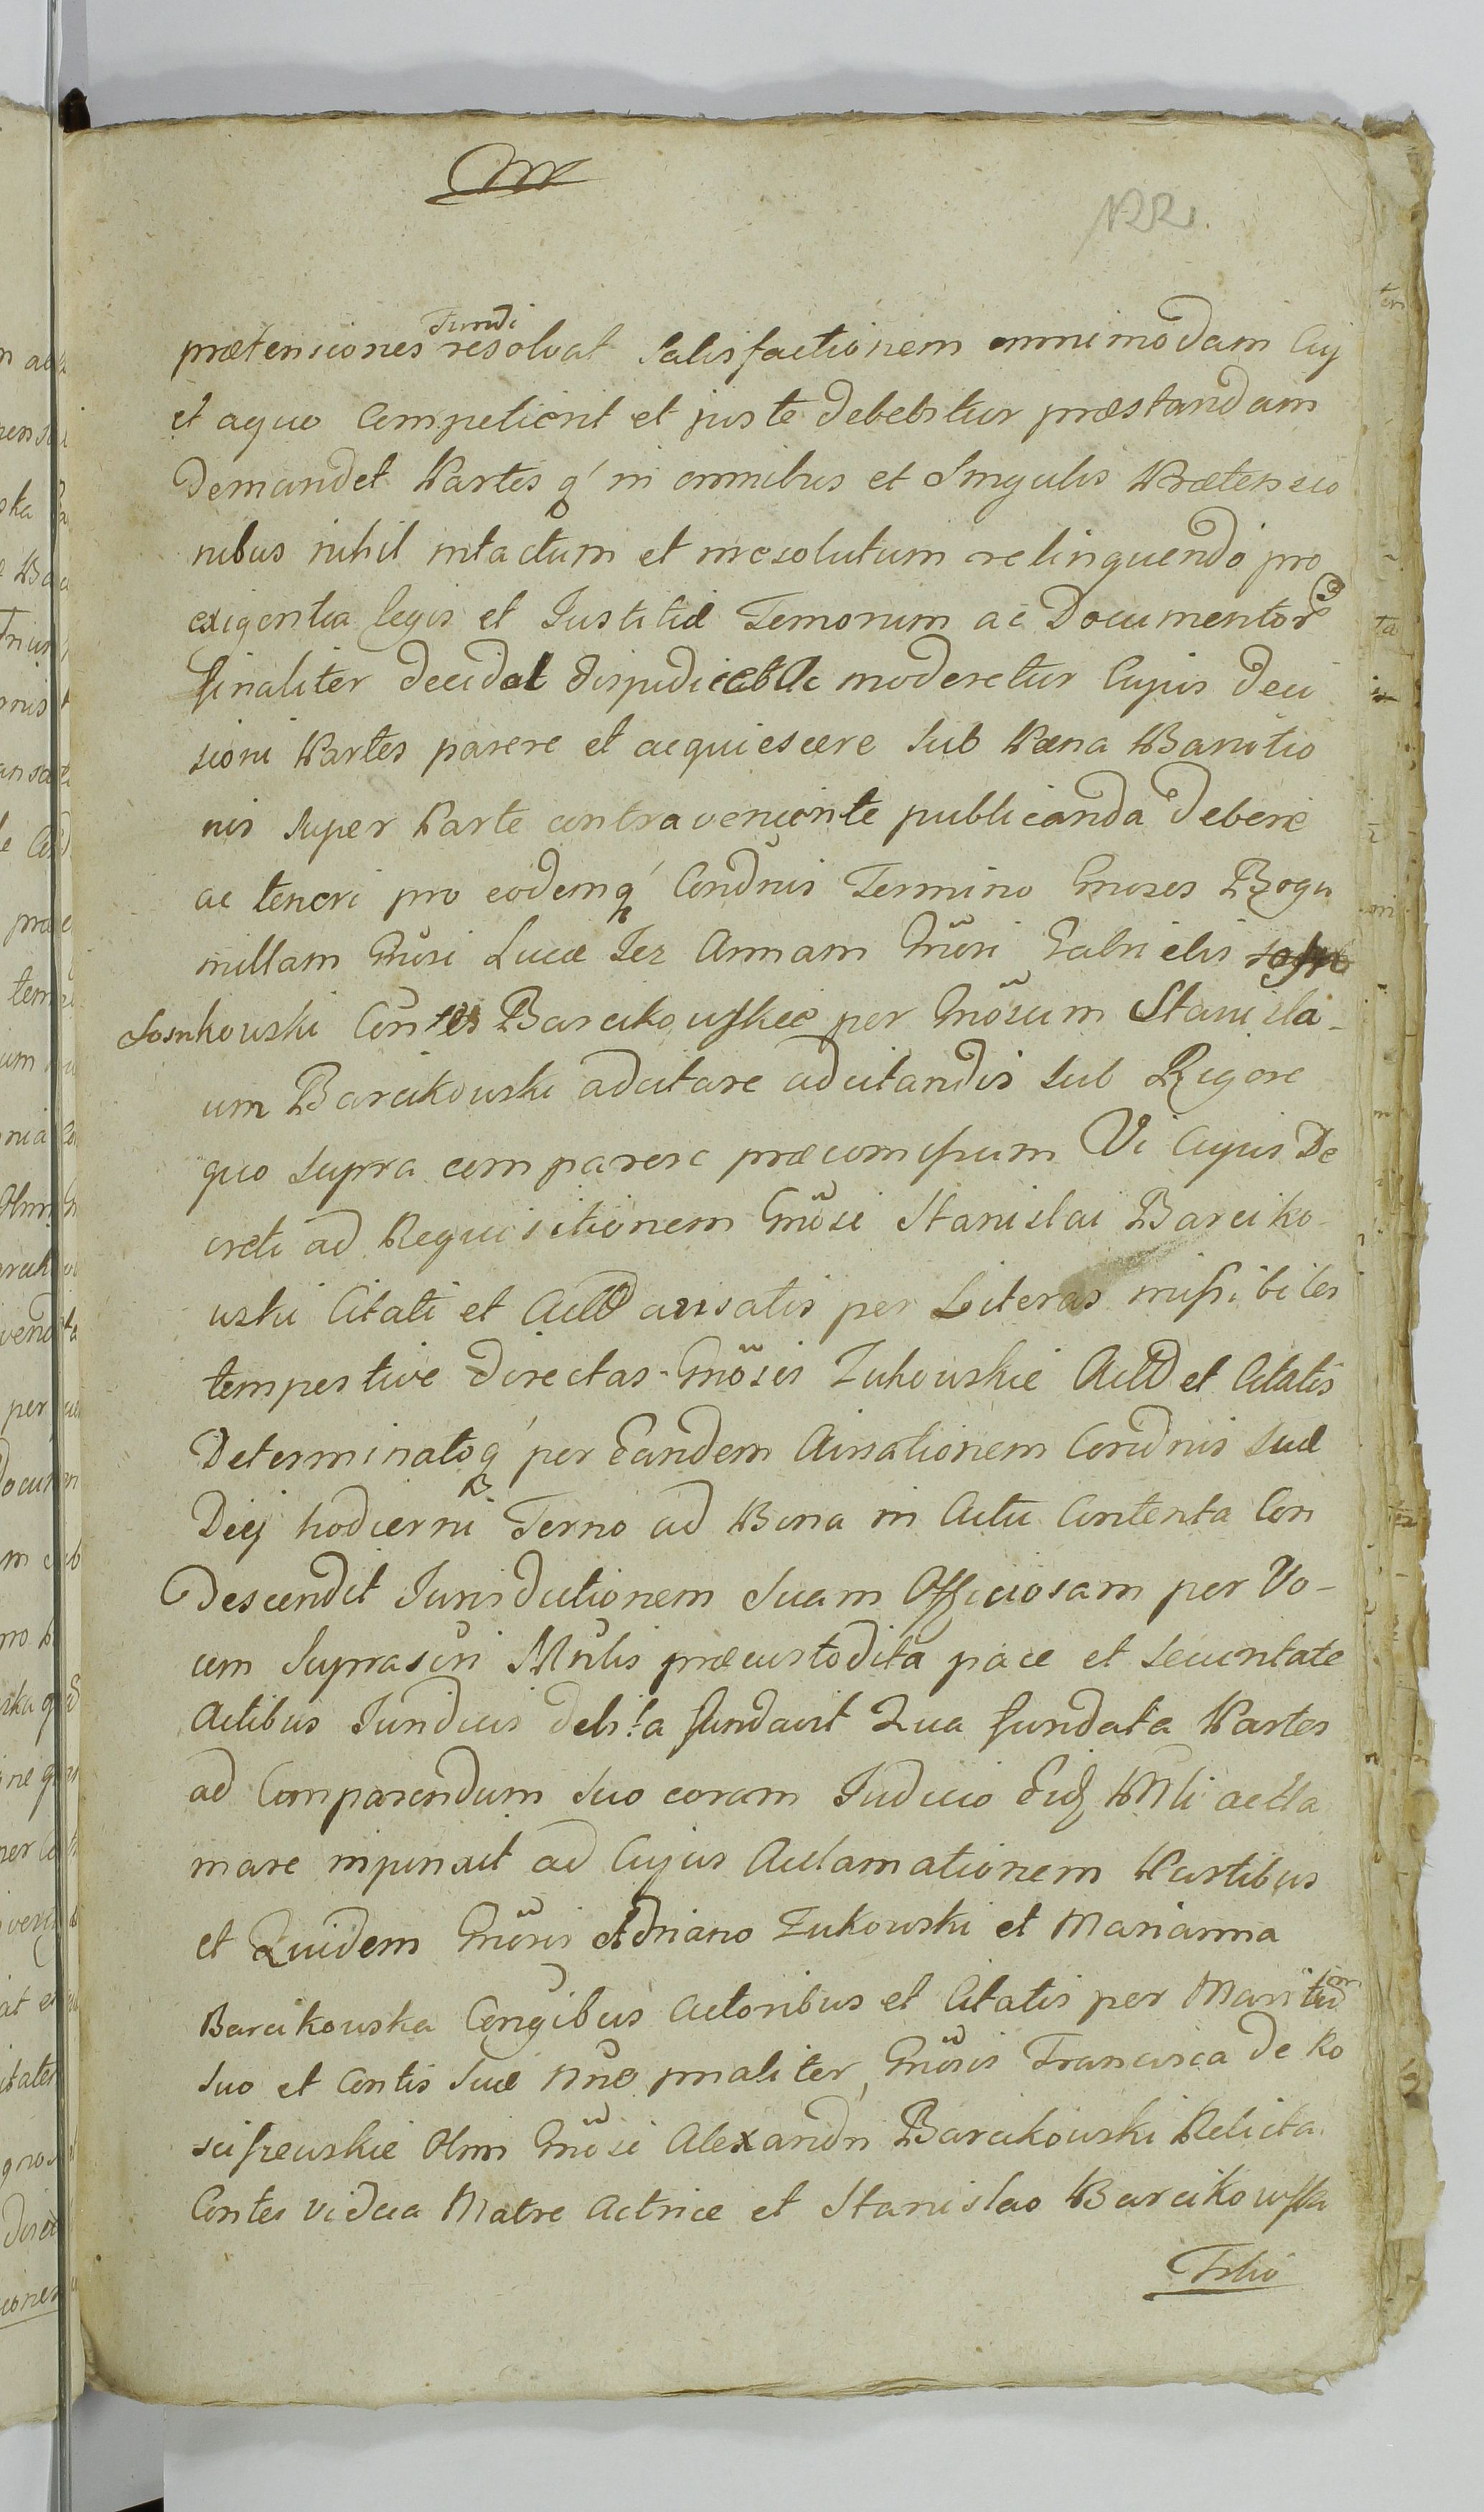 122.
prætensiones resolvat satisfactionem omnimodam Cuj
Fundi
et a quo Competierit et juste debebitur præstandam
Demandet Partes q' in omnibus et Singulis Prætensio
nibus nihil intactum et irresolutum relinquendo pro
exigentia legis et Justitiæ Temonum ac Documentor
finaliter decidat dijudicet Ac moderetur Cujus deci
sioni Partes parere et acquiescere sub Pæna Banitio
nis super Parte contraveniente publicanda debere
ac teneri pro eodemq' Condnis Termino Gnoses Bogu
millam Gnosi Lucæ Jez Annam Gnosi Gabrielis
Sosnkowski Contes Barcikowskie per Gnosum Stanisla-
um Barcikowski adcitare adcitandis sub Rigore
quo supra comparere præcomissum Vi Cujus De
creti ad Requisitionem Gnosi Stanislai Barciko
wski Citati et Act avisatis per Literas missibiles
tempestive directas Gnosis Zukowskie Act et Citatis
Determinatoq' per Eandem Avisationem Condnis suæ
Diej hodierni Terno ad Bona in Actu Contenta Con
Descendit Jurisdictionem suam Officiosam per Vo-
cem suprascri Mnlis præcustodita pace et securitate
Actibus Juridicis debita fundavit Qua fundata Partes
ad Comparendum suo coram Judicio Eid Mli accla
mare injunxit ad Cujus Aclamationem Partibus
et Quidem Gnosis Adriano Zukowski et Marianna
Barcikowska Congibus Actoribus et Citatis per Maritum
suo et Contis suæ nne pnaliter, Gnosis Francisca de Ko
sciszewskie Olim Gnosi Alexandri Barcikowski Relicta
Contes Vidua Matre Actrice et Stanislao Barcikowski
Filio